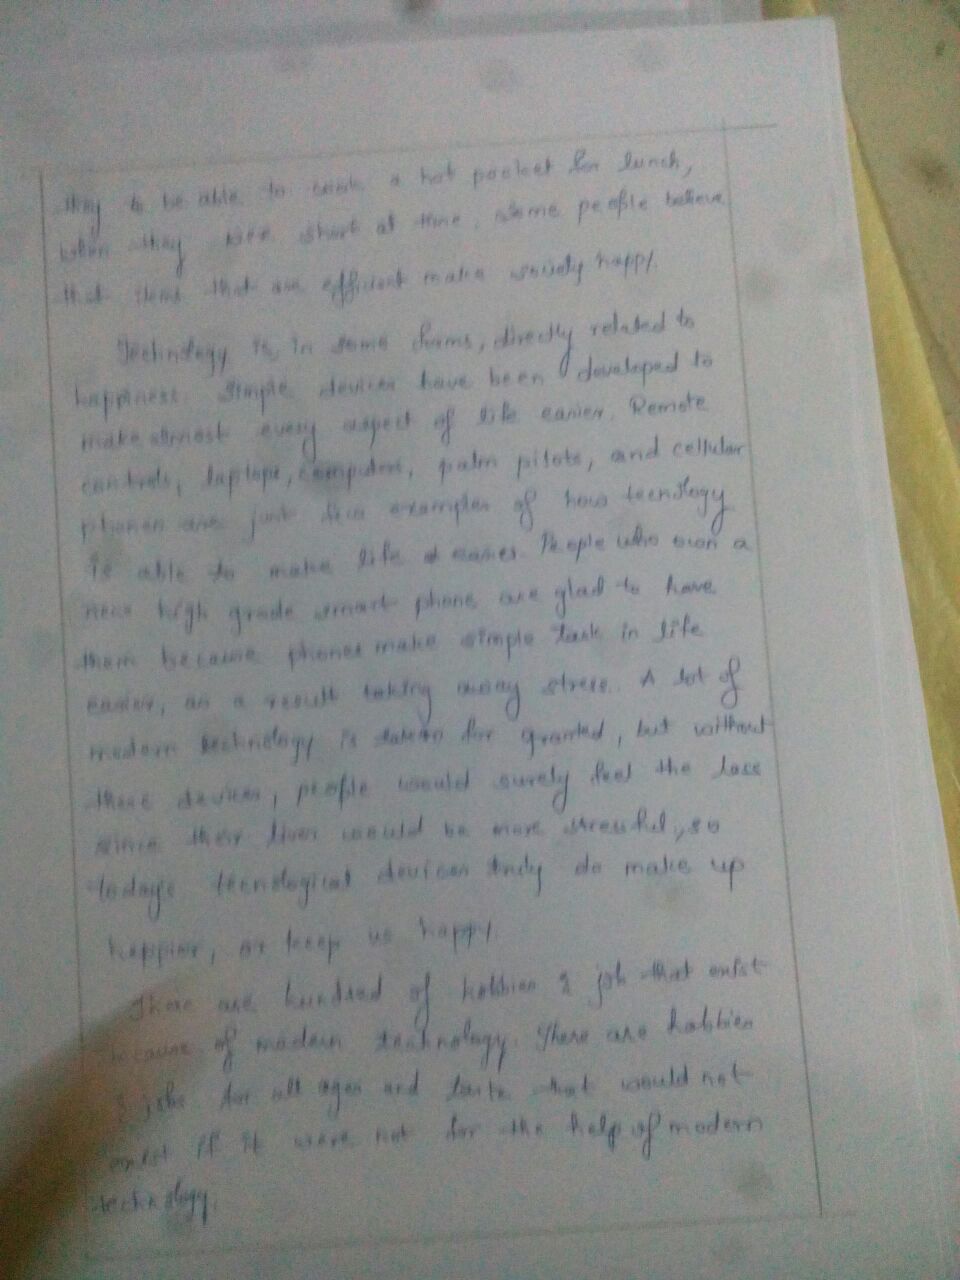 they to be able to cook a hot pocket for lunch,
when they are short at time. Some people believe
that items that are efficient make society happy.
Technology is, in some forms, directly related to
happiness. Simple devices have been developed to
make almost every aspect of life easier. Remote
controls, laptops, computers, palm pilots, and cellular
phones are just few examples of how teenology
is able to make life easier. People who own a
new high grade smart phone are glad to have
them because phones make simple task in life
easier, as a result taking away stress. A lot of
modern technology is taken for granted, but without
these devices, people would surely feel the loss
since their lives would be more stressful, so
today's teenological devices truly do make up
happier, or keep us happy.
There are hundred of hobbies & job that exist
because of modern technology. There are hobbies
& jobs for all ages and taste that would not
exist if it were not for the help of modern
technology.